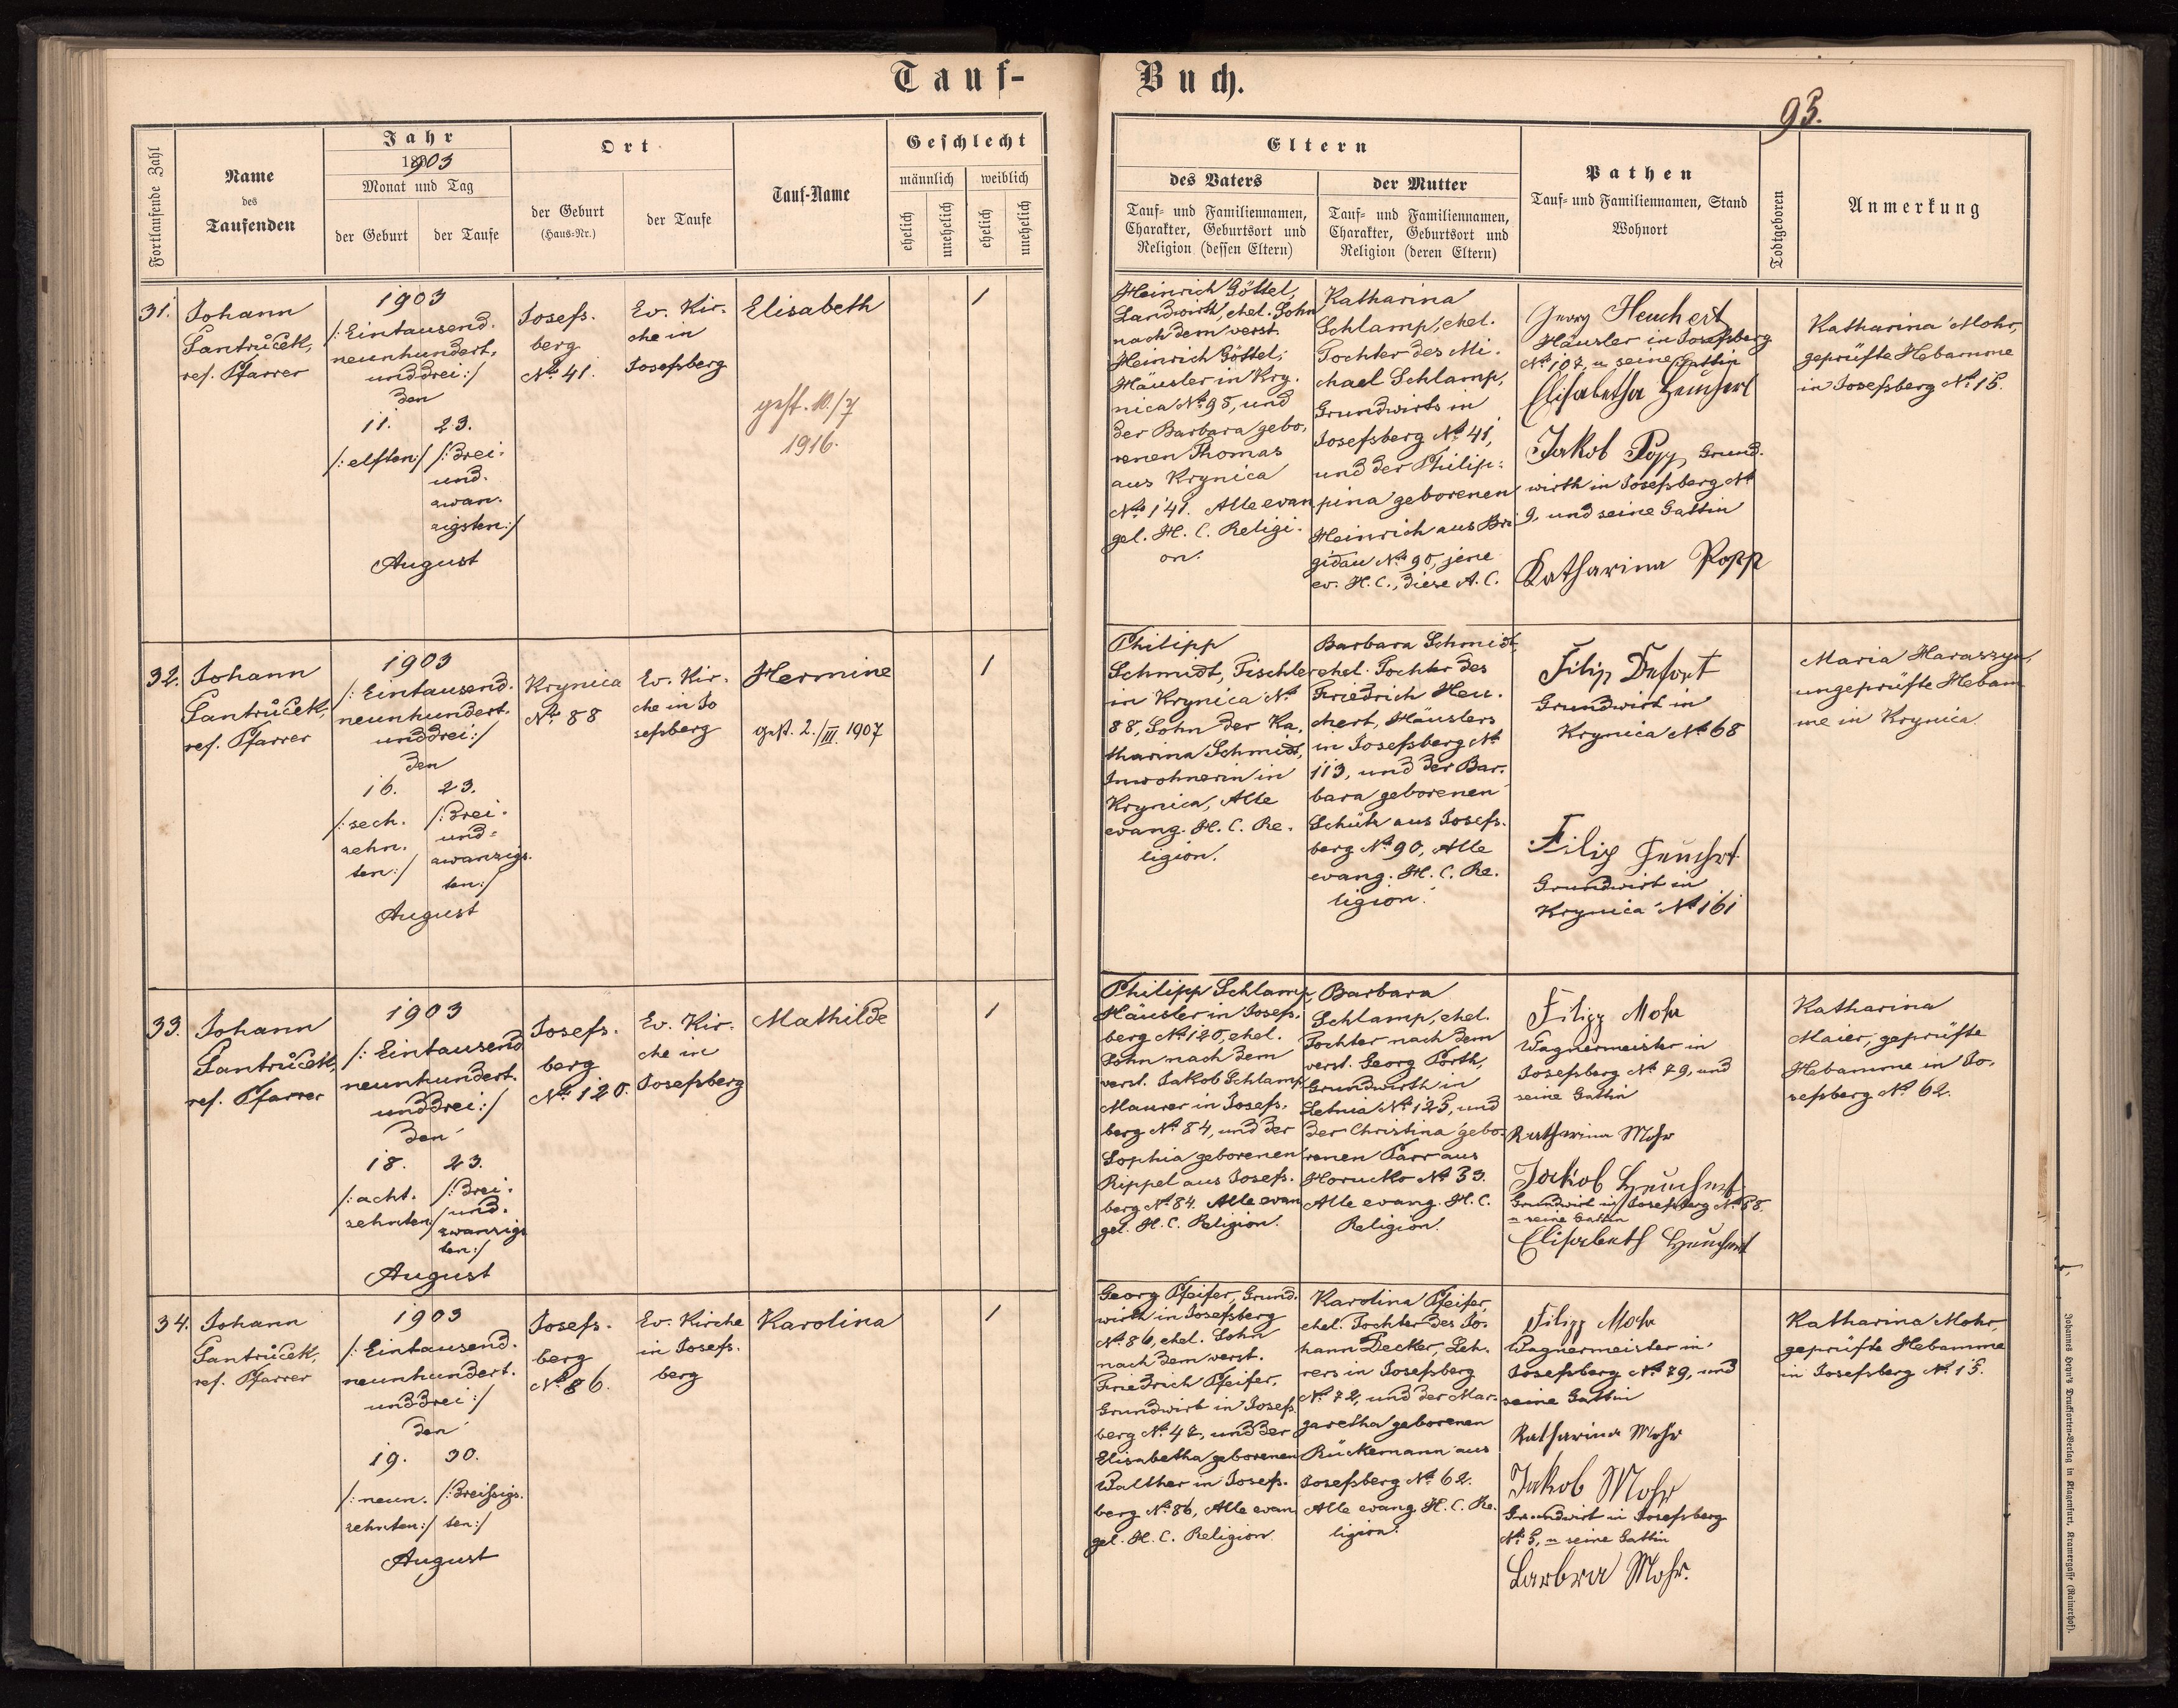 Tauf-
Buch.
95.
Fortlaufende Zahl
Name
des
Taufenden
Jahr
1903
Monat und Tag
der Geburt
der Taufe
Ort
der Geburt
(Haus-Nr.)
der Taufe
Tauf-Name
Geschlecht
männlich
weiblich
ehelich
unehelich
ehelich
unehelich
Eltern
des Vaters
Tauf- und Familiennamen,
Charakter, Geburtsort und
Religion (dessen Eltern)
der Mutter
Tauf- und Familiennamen,
Charakter, Geburtsort und
Religion (deren Eltern)
Pathen
Tauf- und Familiennamen, Stand
Wohnort
Todtgeboren
Anmerkung
31.
Johann
Jantrůček,
ref. Pfarrer
1903
/: Eintausend-
neunhundert-
unddrei :/
den
11. 23.
/: elften :/ /: drei-
und-
zwan-
zigsten :/
August
Josefs-
berg
No 41.
Ev. Kir-
che in
Josefsberg
Elisabeth
gest. 10./7
1916.
1
Heinrich Göttel,
Landwirth, ehel. Sohn
nach dem verst.
Heinrich Göttel,
Häusler in Kry-
nica No 95, und
der Barbara gebo-
renen Thomas
aus Krynica
No 141. Alle evan
gel. H. C. Religi-
on.
Katharina
Schlamp, ehel.
Tochter des Mi-
chael Schlamp,
Grundwirts in
Josefsberg No 41,
und der Philip-
pina geborenen
Heinrich aus Bri
gidau No 90, jene
ev. H. C., diese A. C.
Georg Heuchert
Häusler in Josefsberg
No 107, u seine Gattin
Elisabetha Heuchert
Jakob Popp Grund-
wirth in Josefsberg No
9, und seine Gattin
Katharina Popp
Katharina Mohr,
geprüfte Hebamme
in Josefsberg No 15.
32.
Johann
Jantrůček,
ref. Pfarrer
1903
/: Eintausend-
neunhundert-
unddrei :/
den
16. 23.
/: sech- /: drei-
zehn- und-
ten :/ zwanzigs-
ten :/
August
Krynica
No 88
Ev. Kir-
che in Jo
sefsberg
Hermine
gest. 2./III. 1907
1
Philipp
Schmidt, Tischler
in Krynica No
88, Sohn der Ka-
tharina Schmidt,
Inwohnerin in
Krynica, Alle
evang. H. C. Re-
ligion.
Barbara Schmidt,
ehel. Tochter des
Friedrich Heu-
chert, Häuslers
in Josefsberg No
113, und der Bar-
bara geborenen
Schütz aus Josefs-
berg No 90, Alle
evang. H. C. Re-
ligion.
Filip
Grundwirt in
Krynica No 68
Filip Heuchert
Grundwirt in
Krynica No 161
Maria Haraszyn,
ungeprüfte Hebam
me in Krynica.
33.
Johann
Jantrůček,
ref. Pfarrer
1903
/: Eintausend
neunhundert-
unddrei :/
den
18. 23.
/: acht- /: drei-
zehnten :/ und-
zwanzigs
ten :/
August
Josefs-
berg
No 120.
Ev. Kir-
che in
Josefsberg
Mathilde
1
Philipp Schlamp,
Häusler in Josefs-
berg No 120, ehel.
Sohn nach dem
verst. Jakob Schlamp
Maurer in Josefs-
berg No 84, und der
Sophia geborenen
Rippel aus Josefs-
berg No 84. Alle evan
gel. H. C. Religion.
Barbara
Schlamp, ehel.
Tochter nach dem
verst. Georg Porth,
Grundwirth in
Letnia No 125, und
der Christina gebo-
renen Parr aus
Horucko No 33.
Alle evang. H. C.
Religion.
Filipp Mohr
Wagnermeister in
Josefsberg No 79, und
seine Gattin
Katharina Mohr
Jakob Heuchert
Grundwirt in Josefsberg No 58.
u seine Gattin
Elisabeth Heuchert
Katharina
Maier, geprüfte
Hebamme in Jo-
sefsberg No 62.
34.
Johann
Jantrůček,
ref. Pfarrer
1903
/: Eintausend-
neunhundert-
unddrei :/
den
19. 30.
/: neun- /: dreissigs-
zehnten :/ ten :/
August
Josefs-
berg
No 86.
Ev. Kirche
in Josefs-
berg
Karolina
1
Georg Pfeifer, Grund-
wirth in Josefsberg
No 86, ehel. Sohn
nach dem verst.
Friedrich Pfeifer,
Grundwirt in Josefs
berg No 42, und der
Elisabetha geborenen
Walther in Josefs-
berg No 86, Alle evan
gel. H. C. Religion
Karolina Pfeifer,
ehel. Tochter des Jo-
hann Decker, Leh-
rers in Josefsberg
No 72, und der Mar-
garetha geborenen
Rückemann aus
Josefsberg No 62.
Alle evang. H. C. Re-
ligion.
Filipp Mohr
Wagnermeister in
Josefsberg No 79, und
seine Gattin
Katharina Mohr
Jakob Mohr
Grundwirt in Josefsberg
No 5, u seine Gattin
Barbra Mohr.
Katharina Mohr,
geprüfte Hebamme
in Josefsberg No 15.
Johannes Heyn's Drucksorten-Verlag in Klagenfurt, Kramergasse (Rainerhof).